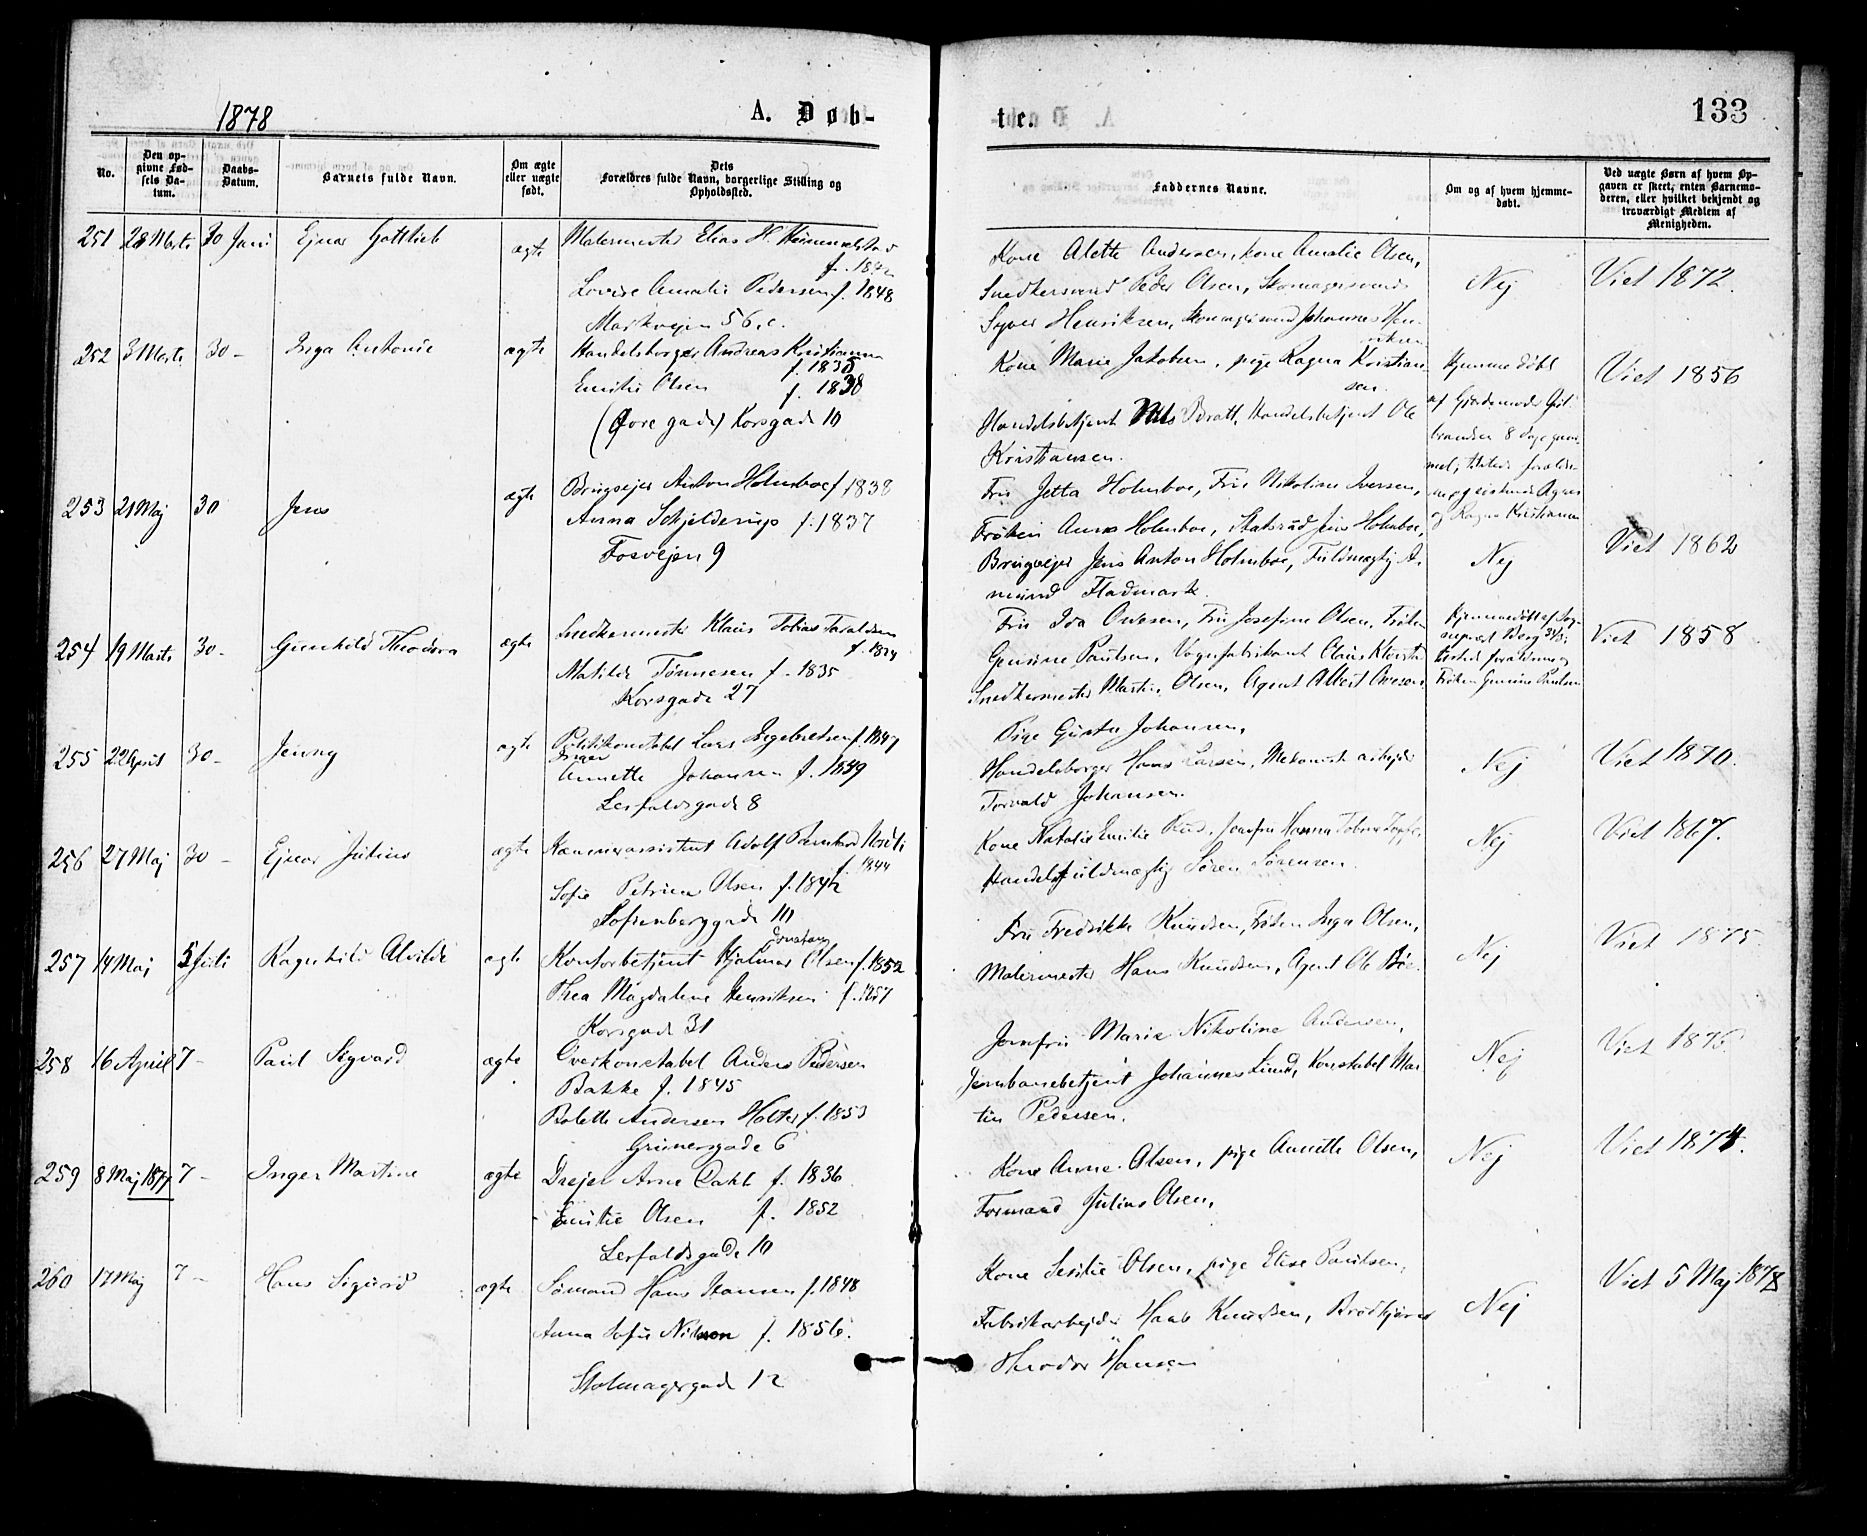 1878
A. Døb-
te.
133
No.
Den opgivne Fødsels Datum.
Daabs-Datum.
Barnets fulde Navn.
Om ægte eller uægte født.
Dets Forældres fulde Navn, borgerlige Stilling og Opholdssted.
Faddernes Navne.
Om og af hvem hjemmedøbt.
Ved uægte Børn af hvem Opgaven er skeet, enten Barnemoderen, eller hvilket bekjendt og troværdigt Medlem af Menigheden.
251 28 Marts 30 Juni Ejnar Gottlieb ægte Malermester Elias H.
f. 1842
Lovise Amalie Pedersen f. 1848
Markvejen 56. c.
Kone Alette Andersen, kone Amalie Olsen,
Snedkersvend Peder Olsen, Skomagersvend
Syver Henriksen, Skomagersvend Johannes Henriksen
Nej
Viet 1872.
252 3 Marts 30 - Inga Antonie ægte Handelsborger Andreas Kristiansen
f. 1835
Emilie Olsen f. 1838
(Øvre gade) Korsgade 10
Kone Marie Jakobsen, pige Ragna Kristiansen.
Handelsbetjent Nils Bratt, Handelsbetjent Ole
Kristiansen.
Hjemmedøbt
af Gjordemoder
8 dage gammel, tilstede forældrene
og Ragna Kristiansen
Viet 1856
253 21 Maj 30 Jens ægte Brugsejer Anton Holmboe f 1838
Anna Schjelderup f. 1837
Fosvejen 9
Fru Jetta Holmboe, Fru Nikoline Iversen,
Frøken Anna Holmboe, Statsråd Jens Holmboe,
Brugsejer Jens Anton Holmboe, Fuldmægtig Amund Fladmark.
Nej
Viet 1862
254 19 Marts 30 - Gunhild Theodora ægte Snedkermester Klaus Tobias Taraldsen
Matilde Tønnesen f. 1835
Korsgade 27
Fru Ida Ovesen, Fru Josefine Olsen, Frøken
Gunine Paulsen, Vognfabrikant Claus
Snedkermester Martin Olsen, Agent Albert Ovesen.
Hjemmedøbt af
tilstede forældrene og
Frøken Gunine Paulsen
Viet 1858
255 22 April 30 - Jenny ægte Politikonstabel Lars Ingebretsen f. 1847
Annette Johansen f. 1849
Lerfaldsgade 8
Pige Gusta Johansen,
Handelsborger Hans Larsen, Mekanisk arbejder
Torvald Johansen.
Nej
Viet 1870.
256 27 Maj 30 - Ejnar Julius ægte Kæmnerassistent Adolf
f. 1844
Sofie Petrine Olsen f. 1842
Sofienberggade 10
Kone Natalie Emilie Rud, Jomfru Hanna
Handelsfuldmægtig Søren Sørensen.
Nej
Viet 1867.
257 14 Maj 5 Juli Ragnhild Alvilde ægte Kontorbetjent Hjalmar Jonatan Olsen f. 1852
Thea Magdalene Henriksen f. 1857
Korsgade 31
Fru Fredrikke Knudsen, Frøken Inga Olsen,
Malermester Hans Knudsen, Agent Ole Bøe.
Nej
Viet 1875
258 16 April 7 - Paul Sigvard ægte Overkonstabel Anders Pedersen
Bakke f. 1845
Bolette Andersen Holter f. 1853
Grünersgade 6
Jomfru Marie Nikoline Andersen,
Jernbanebetjent Johannes Lund, Konstabel Martin Pedersen.
Nej
Viet 1876.
259 8 Maj 1877 7 - Inger Martine ægte Drejer Arne Dahl f. 1836
Emilie Olsen f. 1852
Lerfaldsgade 10
Kone Anne Olsen, pige Annette Olsen,
Formand Julius Olsen,
Nej
Viet 1874.
260 17 Maj 7 - Hans Sigurd ægte Sømand Hans Hansen f. 1848
Anna Sofie Nilsson f. 1856.
Stolmagergade 12
Kone Sesilie Olsen, pige Elise Paulsen,
Fabrikarbejder Hans Knudsen, Brødkjører
Theodor Hansen
Nej
Viet 5 Maj 1878